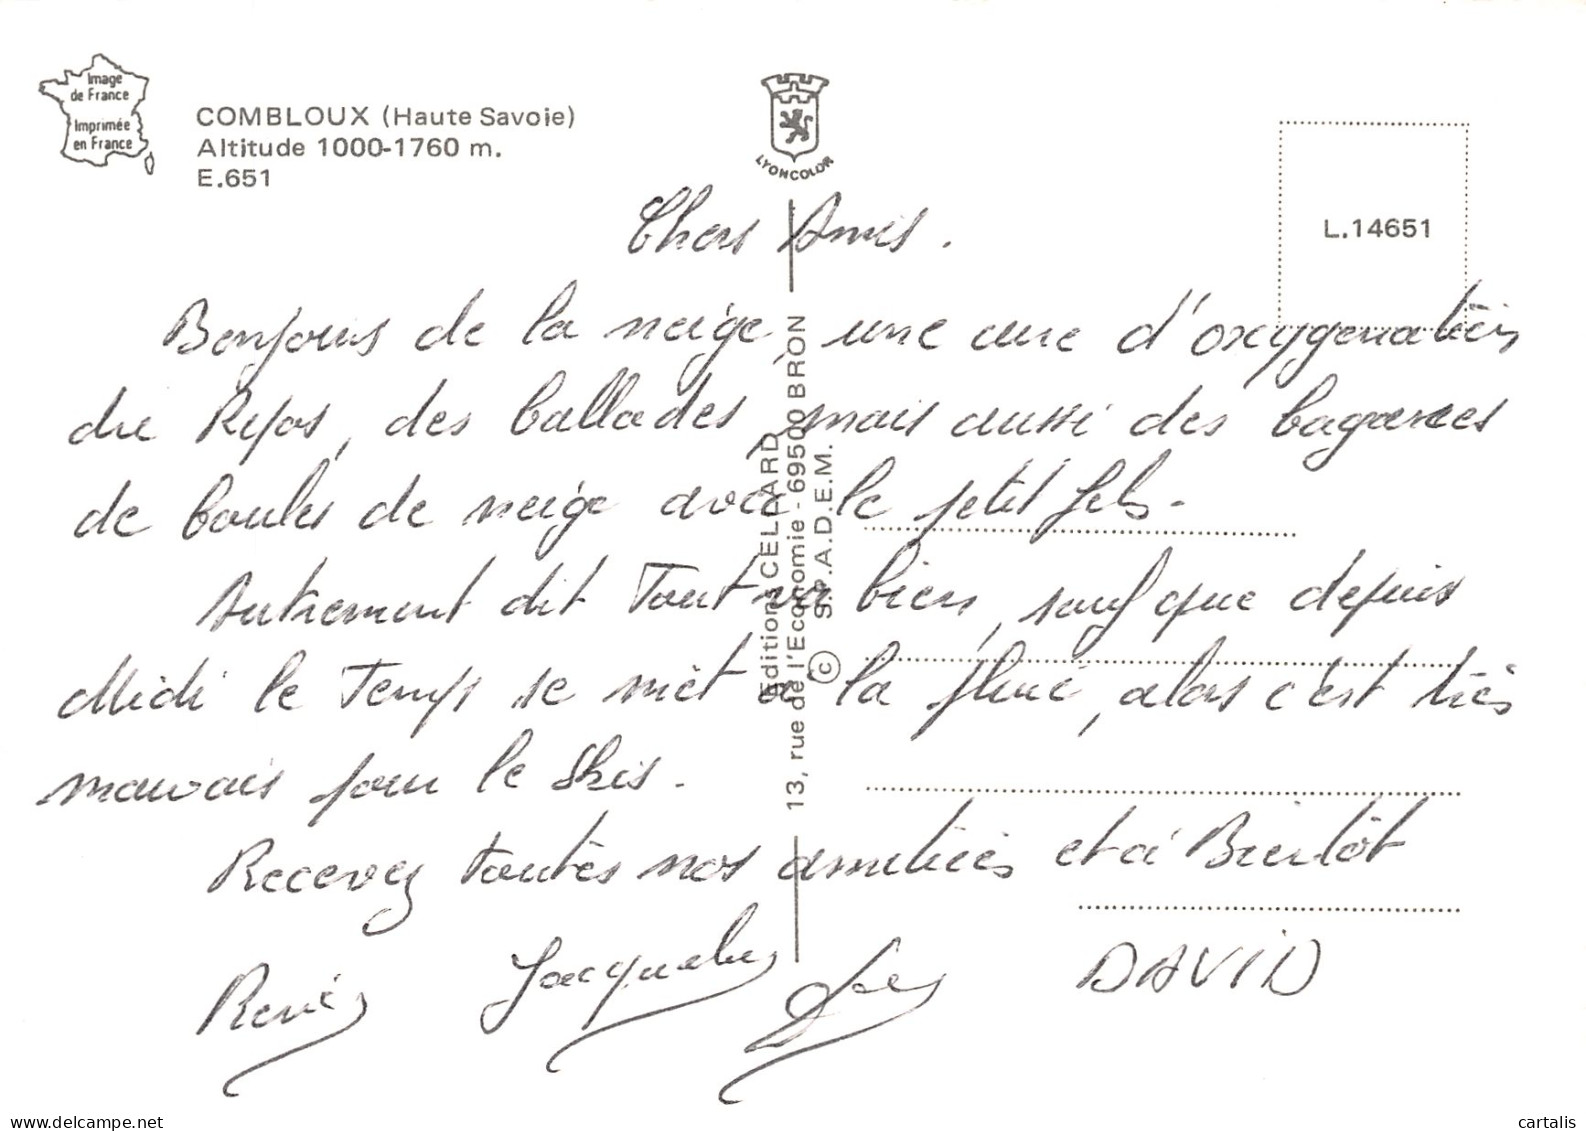 Image
de France
Imprimée
en France
COMBLOUX (Haute Savoie)
Altitude 1000-1760 m.
E.651
LYONCOLOR
L.14651
Editions CELLARD
13, rue de l'Economie - 69500 BRON
© S.P.A.D.E.M.
Chers Amis.
Bonjours de la neige, une cure d'oxygenation
du Repos, des ballades, mais aussi des bagarres
de boules de neige avec le petit fils.
Autrement dit Tout va bien, sauf que depuis
Midi le Temps se met à la pluie, alors c'est très
mauvais pour le Skis.
Recevez toutes nos amitiées et à Bientôt
René Jacqueline DAVID
cartalis